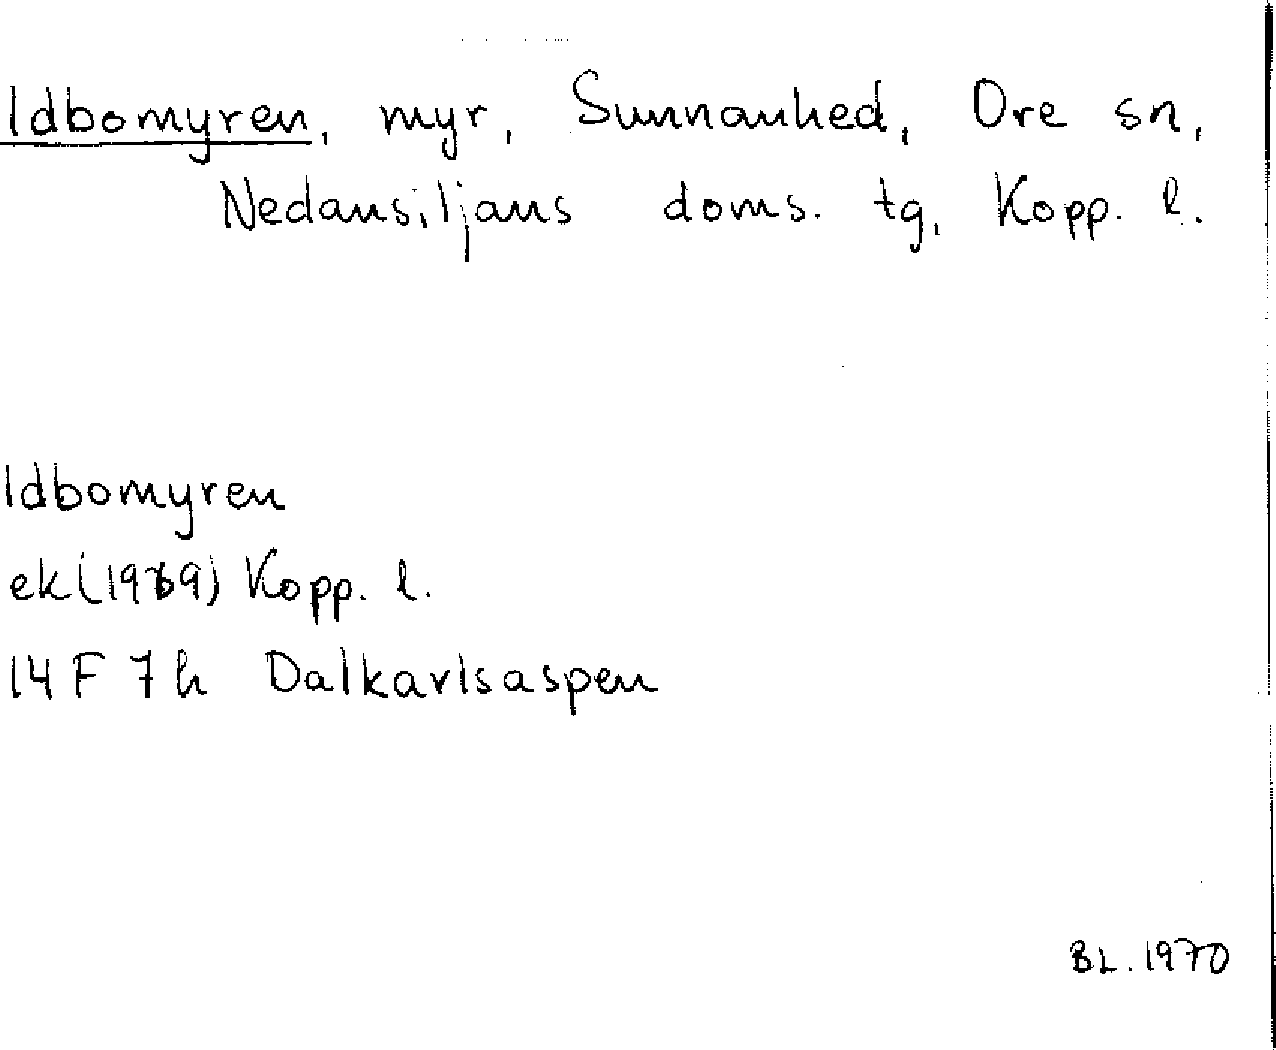 Idbomyren, myr, Sunnanhed, Ore sn,
Nedansiljans doms. tg, Kopp. l.
Idbomyren
ek (1969) Kopp. l.
14 F 7h Dalkarlsaspen
BL. 1970